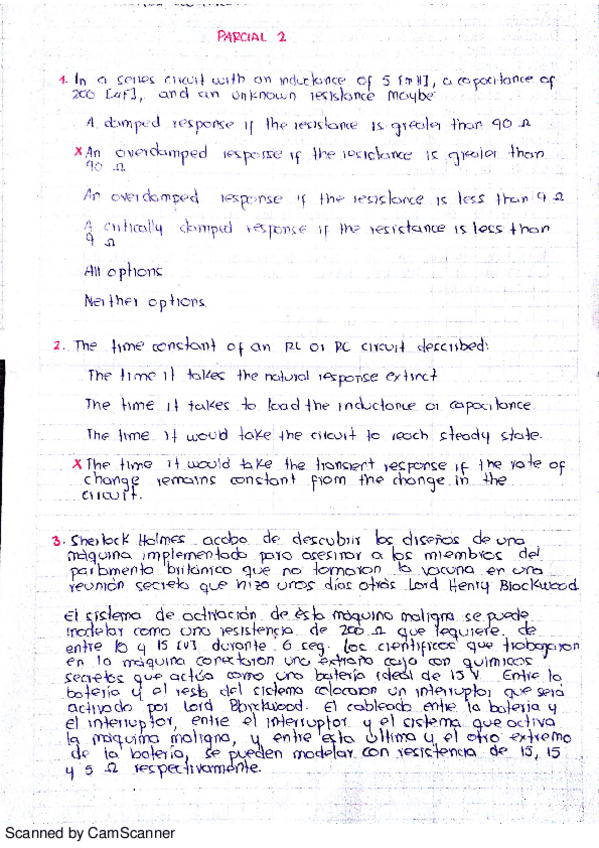 PARCIAL 2
1. In a series circuit with an inductance of 5 [mH], a capacitance of
200 [uF], and an unknown resistance maybe:
A damped response if the resistance is greater than 90 Ω
x An overdamped response if the resistance is greater than
90 Ω
An overdamped response if the resistance is less than 9 Ω
A critically damped response if the resistance is less than
9 Ω
All options
Neither options.
2. The time constant of an RL or RC circuit described:
The time it takes the natural response extinct
The time it takes to load the inductance or capacitance
The time it would take the circuit to reach steady state.
x The time it would take the transient response if the rate of
change remains constant from the change in the
circuit.
3. Sherlock Holmes acaba de descubrir los diseños de una
máquina implementado para asesinar a los miembros del
parlamento británico que no tomaron la vacuna en una
reunión secreta que hizo unos días atrás Lord Henry Blackwood
El sistema de activación de esta máquina maligna se puede
modelar como una resistencia de 200 Ω que requiere de
entre 10 y 15 [V] durante 6 seg. Los científicos que trabajaron
en la máquina conectaron una extraña caja con químicos
secretos que actúa como una batería ideal de 15 V. Entre la
batería y el resto del sistema colocaron un interruptor que será
activado por Lord Blackwood. El cableado entre la batería y
el interruptor, entre el interruptor y el sistema que activa
la máquina maligna, y entre esta última y el otro extremo
de la batería, se pueden modelar con resistencia de 15, 15
y 5 Ω respectivamente.
Scanned by CamScanner